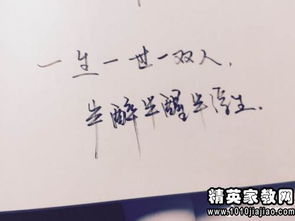 一生一世一双人,
半醉半醒半浮生.
精英家教网
www.1010jiajiao.com